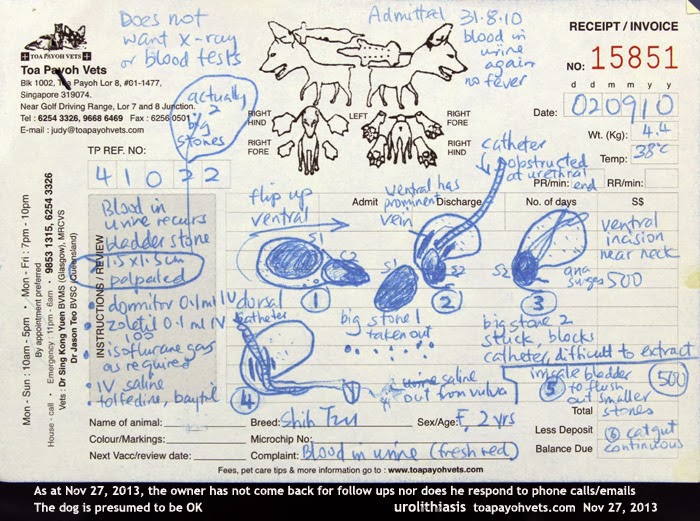 Does not
want x-ray
or blood tests
Admitted 31.8.10
blood in
urine
again
no fever
RECEIPT / INVOICE
NO: 15851
TOA PAYOH VETS
Toa Payoh Vets
Blk 1002, Toa Payoh Lor 8, #01-1477,
Singapore 319074.
Near Golf Driving Range, Lor 7 and 8 Junction.
Tel : 6254 3326, 9668 6469 Fax : 6256 0501
E-mail : judy@toapayohvets.com
actually
2
big
stones
RIGHT HIND
LEFT
RIGHT HIND
RIGHT FORE
RIGHT FORE
d d m m y y
Date: 020910
Wt. (Kg): 4.4
Temp: 38°C
PR/min:
RR/min:
TP REF. NO:
41022
catheter
obstructed
at urethral
end
Admit
Discharge
No. of days
S$
flip up
ventral
ventral has
prominent
vein
S1
S2
1
S1
S2
2
S2
3
ventral
incision
near neck
500
INSTRUCTIONS / REVIEW
Blood in
urine recurs
bladder stone
1.5 x 1.5cm
palpated
• domitor 0.1ml IV
• zoletil 0.1ml IV
100
• isoflurane gas
as required
• IV saline
• tolfedine, baytril
dorsal
catheter
4
big stone 1
taken out
big stone 2
stuck, blocks
catheter, difficult to extract
saline
out from vulva
5
irrigate bladder
to flush
out smaller
stones
500
6 catgut
continuous
Total
Less Deposit
Balance Due
Name of animal:
Breed: Shih Tzu
Sex/Age: F, 2 yrs
Colour/Markings:
Microchip No:
Next Vacc/review date:
Complaint: Blood in urine (fresh red)
Fees, pet care tips & more information go to : www.toapayohvets.com
Mon - Sun : 10am - 5pm • Mon - Fri : 7pm - 10pm
By appointment preferred
House - call • Emergency : 11pm - 6am • 9853 1315, 6254 3326
Vets : Dr Sing Kong Yuen BVMS (Glasgow), MRCVS
Dr Jason Teo BVSC (Queensland)
As at Nov 27, 2013, the owner has not come back for follow ups nor does he respond to phone calls/emails
The dog is presumed to be OK
urolithiasis toapayohvets.com Nov 27, 2013